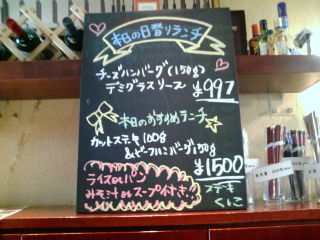 本日の日替りランチ
チーズハンバーグ(150g)
デミグラスソース
¥997
本日のおすすめランチ
カットステーキ100g
&ビーフハンバーグ150g
¥1500
ライスorパン
みそ汁orスープ付き!!
ステーキ